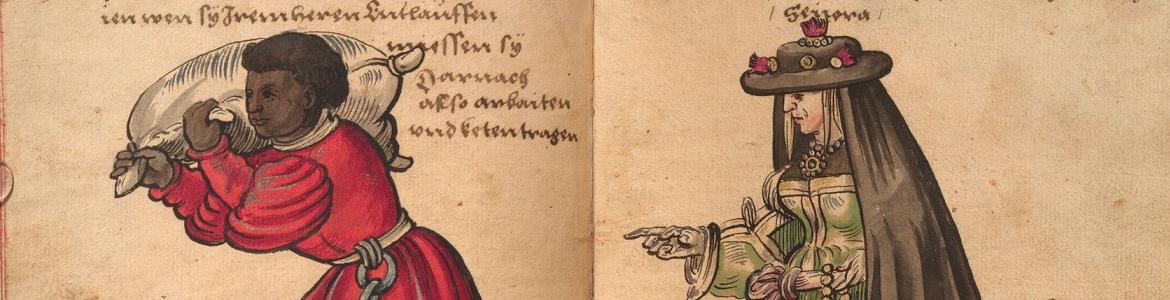 ien wen sy Irem heren Entlauffen
miessen sy
Darnach
also arbaiten
vnd keten tragen
/ Senora /